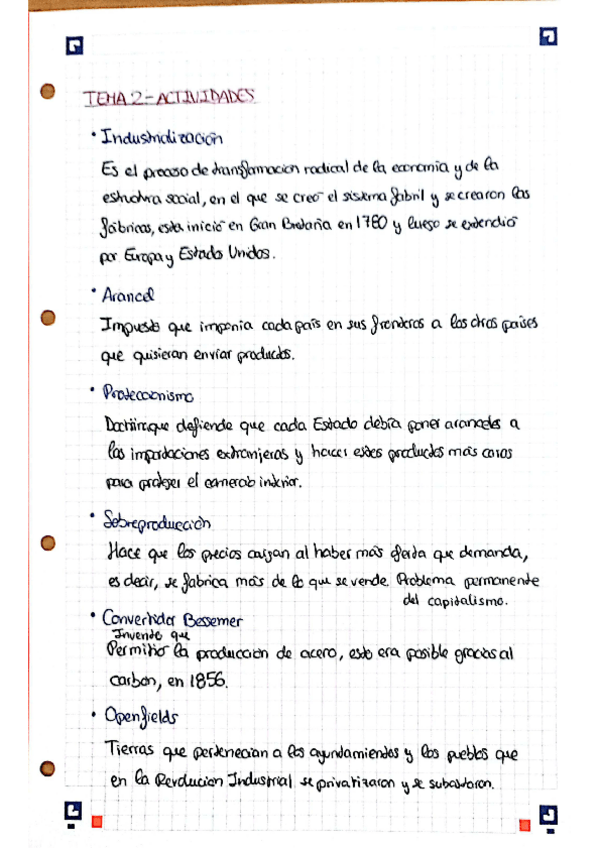 TEMA 2 - ACTIVIDADES
• Industrialización
Es el proceso de transformación radical de la economía y de la
estructura social, en el que se creó el sistema fabril y se crearon las
fábricas, esta inició en Gran Bretaña en 1780 y luego se extendió
por Europa y Estado Unidos.
• Arancel
Impuesto que imponia cada país en sus fronteras a los otros países
que quisieran enviar productos.
• Proteccionismo
Doctrina que defiende que cada Estado debía poner aranceles a
las importaciones extranjeras y hacer estos productos más caros
para proteger el comercio interior.
• Sobreproducción
Hace que los precios caigan al haber más oferta que demanda,
es decir, se fabrica más de lo que se vende. Problema permanente
del capitalismo.
• Convertidor Bessemer
Invento que
Permitió la producción de acero, esto era posible gracias al
carbón, en 1856.
• Openfields
Tierras que pertenecían a los ayuntamientos y los pueblos que
en la Revolución Industrial se privatizaron y se subastaron.